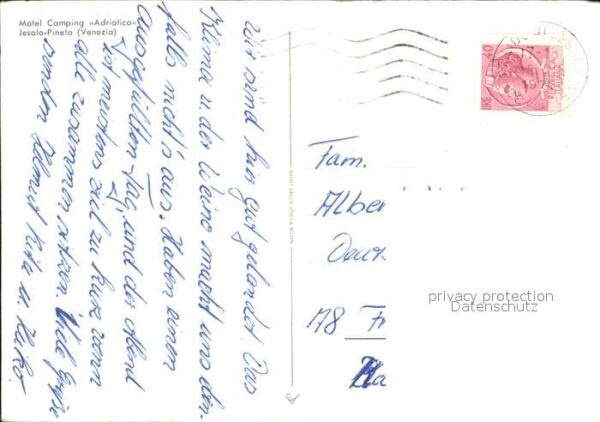 Motel Camping »Adriatico«
Jesolo-Pineta (Venezia)
Wir sind hier gut gelandet. Das
Klima u. der Weino macht uns den-
falls nicht's aus. Haben einen
ausgefüllten Tag, und der Abend
ist meistens viel zu kurz wenn
alle zusammen sitzen. Viele Grüße
senden Helmut Rita u. Heiko
Fam.
Alber
78 Fr
Ha
privacy protection
Datenschutz